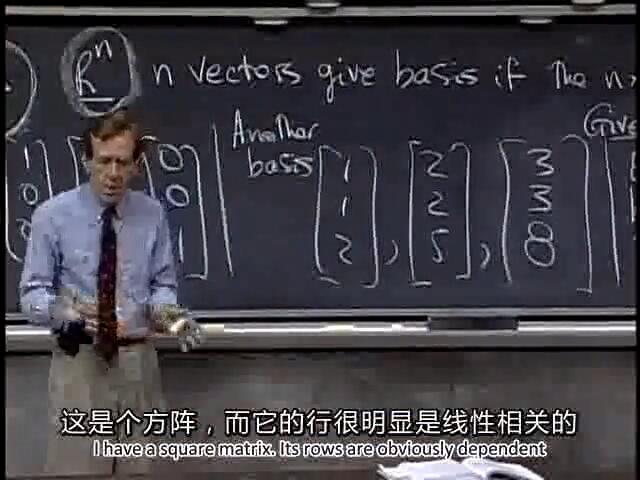 Rⁿ n vectors give basis if the n
Another basis [1 1 2], [2 2 5], [3 3 8] Given
1 0
0 0
0 1
这是个方阵，而它的行很明显是线性相关的
I have a square matrix. Its rows are obviously dependent